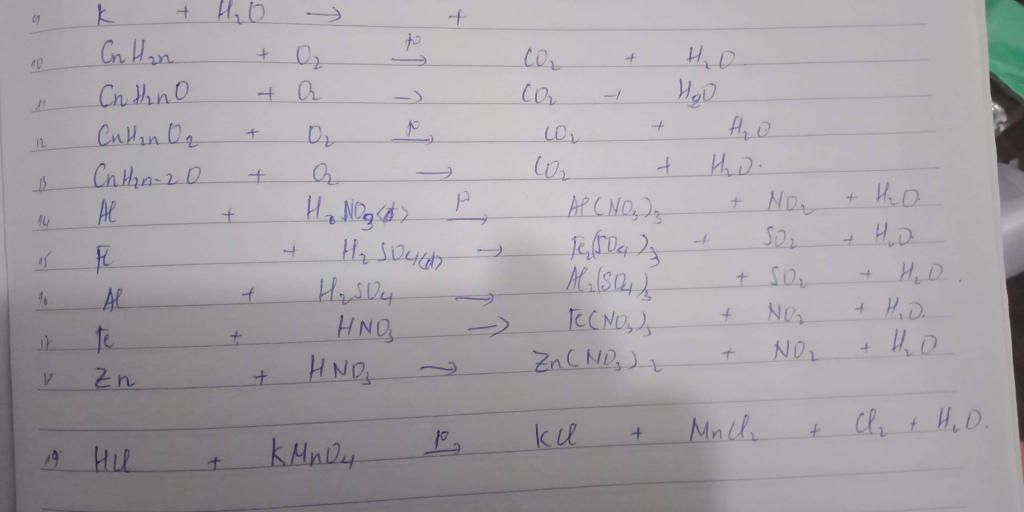 9 K + H₂O → +
10 CnH2n + O₂ t⁰→ CO₂ + H₂O
11 CnH2nO + O₂ → CO₂ + H₂O
12 CnH2nO₂ + O₂ t⁰→ CO₂ + H₂O
13 CnH2n-2O + O₂ → CO₂ + H₂O.
14 Al + H₂NO₃(đ) t⁰→ Al(NO₃)₃ + NO₂ + H₂O
15 Fe + H₂SO₄(đ) → Fe₂(SO₄)₃ + SO₂ + H₂O
16 Al + H₂SO₄ → Al₂(SO₄)₃ + SO₂ + H₂O.
17 Fe + HNO₃ → Fe(NO₃)₃ + NO₂ + H₂O.
Zn + HNO₃ → Zn(NO₃)₂ + NO₂ + H₂O
19 HCl + KMnO₄ t⁰→ KCl + MnCl₂ + Cl₂ + H₂O.